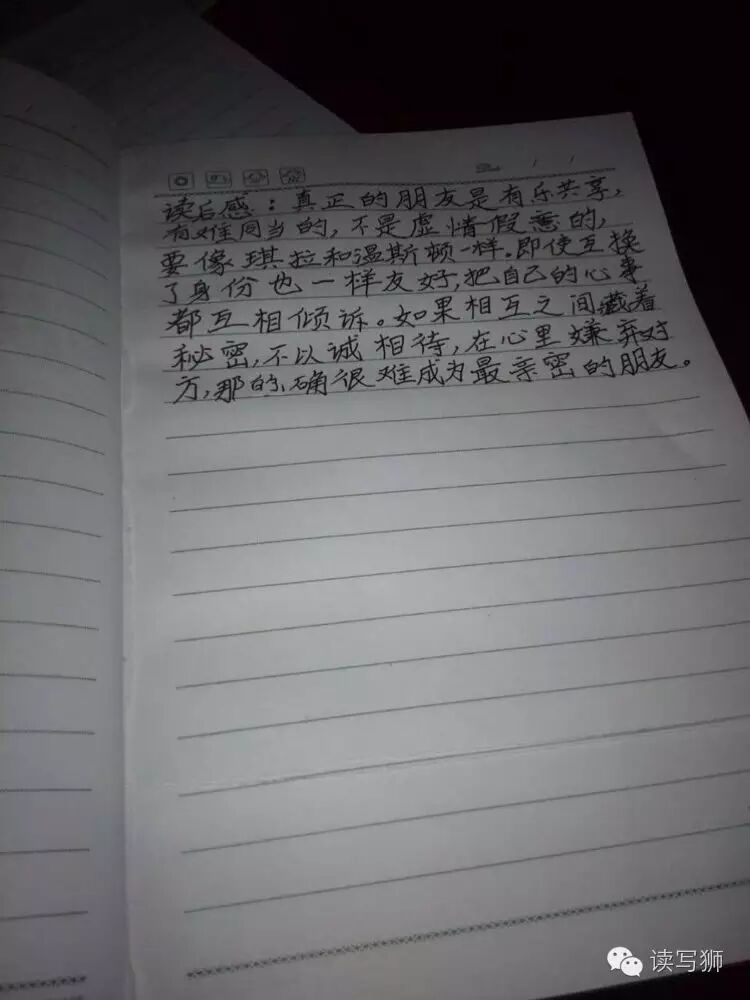 读后感：真正的朋友是有乐共享，
有难同当的，不是虚情假意的，
要像琪拉和温斯顿一样。即使互换
了身份也一样友好，把自己的心事
都互相倾诉。如果相互之间藏着
秘密，不以诚相待，在心里嫌弃对
方，那的确很难成为最亲密的朋友。
读写狮